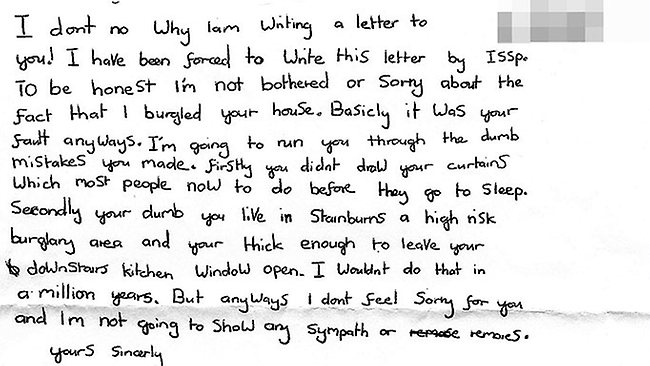 I dont no Why Iam Writing a letter to
you! I have been forced to Write this letter by ISSP.
To be honest I'm not bothered or Sorry about the
fact that I burgled your house. Basicly it was your
fault anyways. I'm going to run you through the dumb
mistakes you made. firstly you didnt draw your curtains
Which most people now to do before they go to sleep.
Secondly your dumb you live in Stainburns a high risk
burglary area and your thick enough to leave your
downstairs kitchen window open. I wouldnt do that in
a million years. But anyways I dont feel sorry for you
and I'm not going to show any sympath or remose remores.
yours sincerly